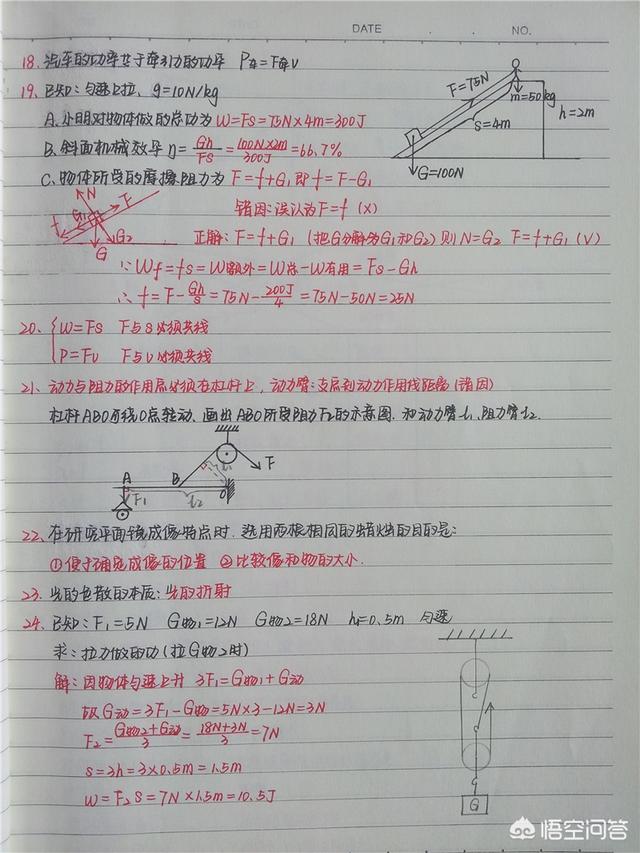 DATE . . NO.
18. 汽车的功率等于牵引力的功率 P车=F牵v
19. 已知:匀速上拉、g=10N/kg
A. 小明对物体做的总功为 W=FS=75N×4m=300J
B. 斜面机械效率 η=Gh/FS=100N×2m/300J=66.7%
C. 物体所受的摩擦阻力为 F=f+G₁ 即 f=F-G₁
F=75N
m=50kg
h=2m
s=4m
G=100N
错因:误认为F=f (×)
N
F
G₁
f
G₂
G
正解:F=f+G₁ (把G分解为G₁和G₂) 则N=G₂ F=f+G₁ (√)
∵Wf=fs=W额外=W总-W有用=Fs-Gh
∴f=F-Gh/s=75N-200J/4=75N-50N=25N
20、 W=Fs F与s必须共线
P=Fv F与v必须共线
21、动力与阻力的作用点必须在杠杆上,动力臂:支点到动力作用线距离(错因)
杠杆ABO可绕O点转动、画出ABO所受阻力F₂的示意图、和动力臂l₁、阻力臂l₂.
A
B
O
F
F₁
l₁
l₂
22、在研究平面镜成像特点时、选用两根相同的蜡烛的目的是:
①便于确定成像的位置 ②比较像和物的大小.
23、光的色散的本质:光的折射
24、已知:F₁=5N G物₁=12N G物2=18N h=0.5m 匀速
求:拉力做的功(拉G物2时)
解:因物体匀速上升 3F₁=G物₁+G动
故G动=3F₁-G物=5N×3-12N=3N
F₂=G物2+G动/3=18N+3N/3=7N
s=3h=3×0.5m=1.5m
W=F₂s=7N×1.5m=10.5J
G
悟空问答